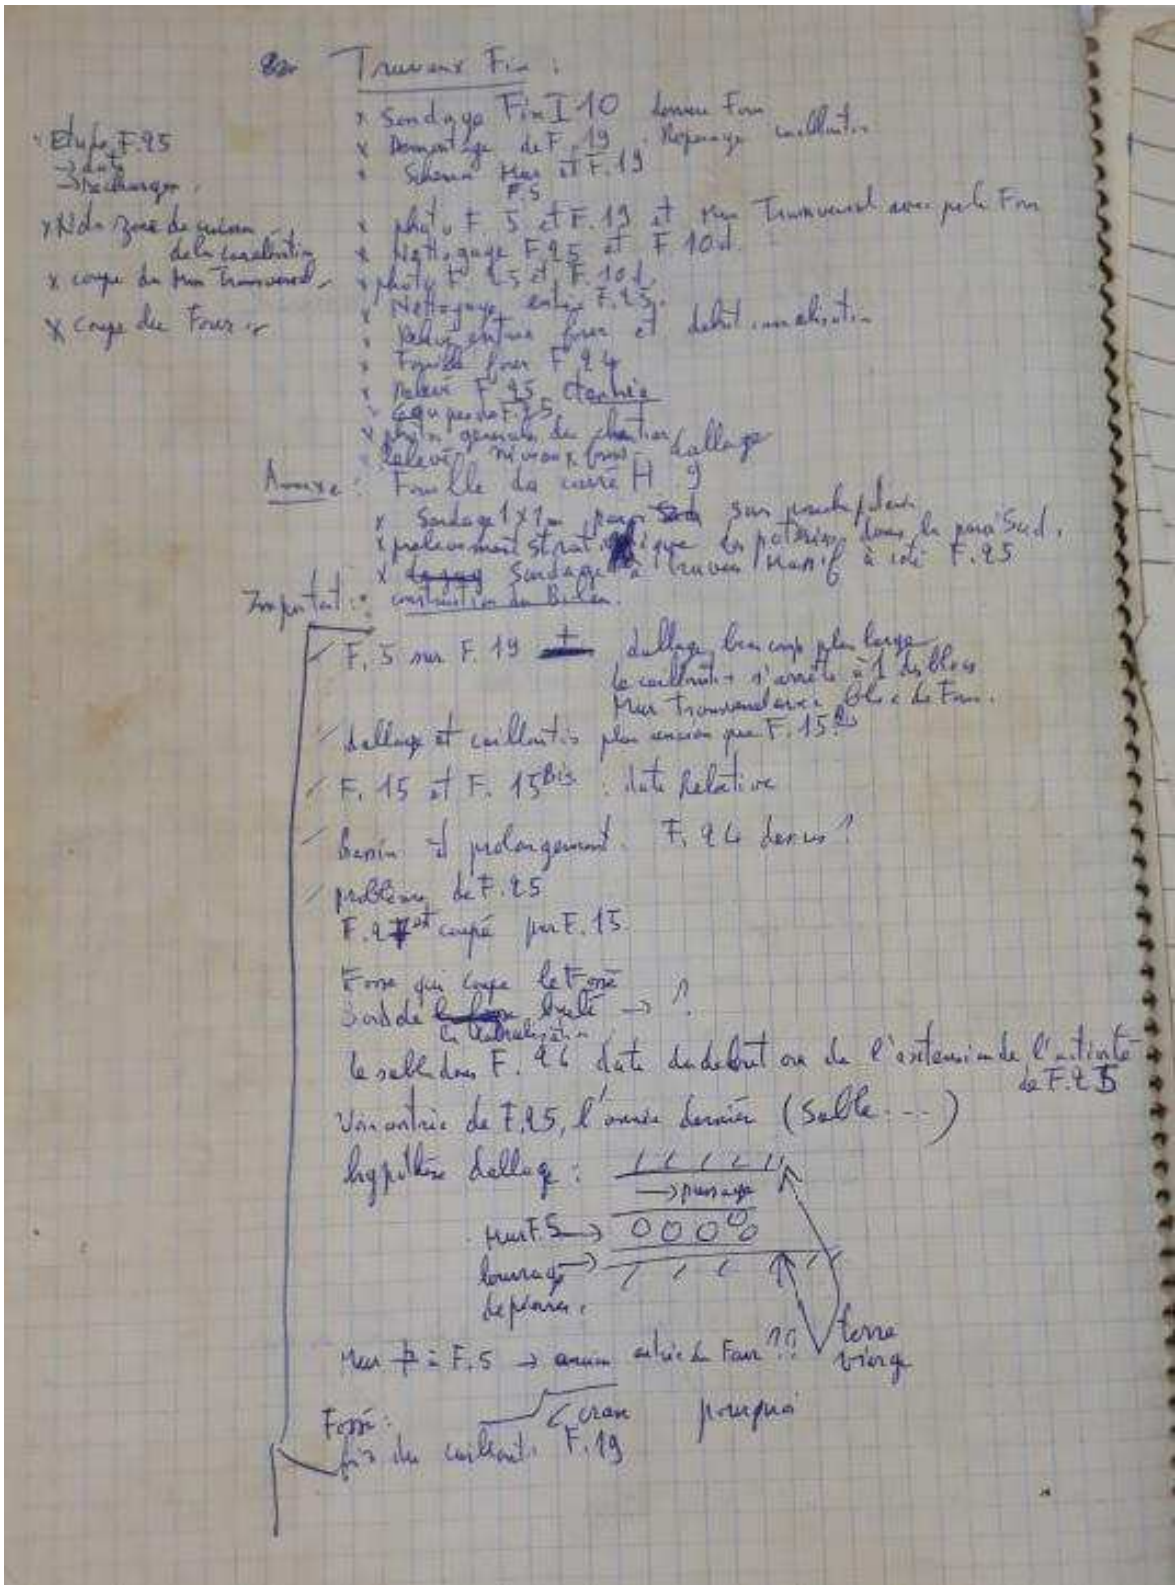 Travaux Fin :
x Sondage Fin I 10 Four
x Demontage de F. 19. Reperage cailloutis
x Schema Mur et F. 19
F. 5
x photo F. 5 et F. 19 et Mur Transversal avec petit Four
x Nettoyage F. 25 et F 10d.
x photo F. 25 et F. 10d.
x Nettoyage entrée F. 25.
x Relevé entrée four et debut canalisation
x Fouille four F 24
x relevé F 25
x coupes de F. 25
x photos generales du chantier
x Relevé niveaux four dallage
Etude F. 25
→ date
x N de zone de
de la canalisation
x coupe du Mur Transversal
x coupe du Four
Annexe : Fouille du carré H 9
x Sondage 1 x 1m sur
x prelevement stratigraphique des poteries dans la paroi Sud.
x Sondage à travers Massif à coté F. 25
Important : construction du Bilan.
F. 5 sur F. 19 + dallage beaucoup plus large
le cailloutis s'arrête à 1 des blocs
Mur Transversal bloc de Four.
dallage et cailloutis plus ancien que F. 15
F. 15 et F. 15 Bis : date Relative
Bassin et prolongement. F. 24 dessus ?
problème de F. 25
F. 2 est coupé par F. 15
Fosse qui coupe le Fossé
Bord de brulé → ?
le sable dans F. 24 date du debut ou de l'extension de l'activité
de F. 25
Voir entrée de F. 25, l'année dernière (Sable ---)
hypothèse dallage :
→ passage
Mur F. 5 →
bourrage →
de pierres.
terre
vierge
Mur à F. 5 → ancien entrée du Four ??
Fossé : pourquoi
fin du caillouti F. 19